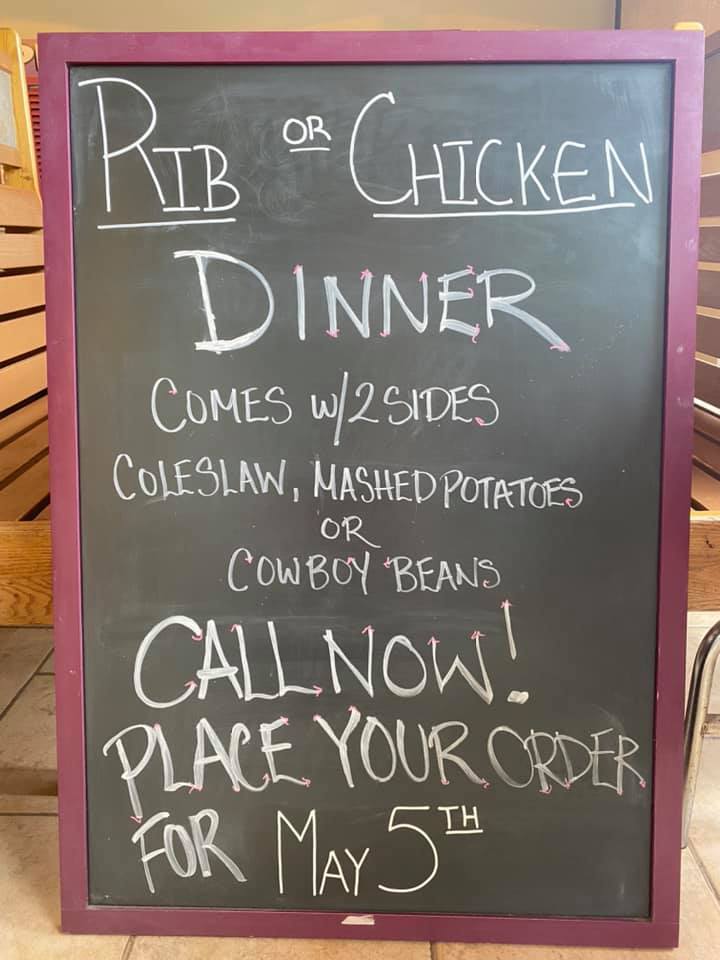 RIB OR CHICKEN
DINNER
COMES W/2 SIDES
COLESLAW, MASHED POTATOES
OR
COWBOY BEANS
CALL NOW!
PLACE YOUR ORDER
FOR MAY 5TH